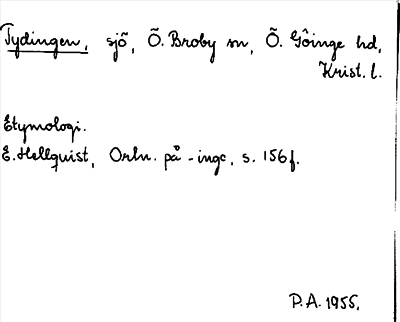 Tydingen, sjö, Ö. Broby sn, Ö. Göinge hd,
Krist. l.
Etymologi.
E. Hellquist, Ortn. på -inge, s. 156 f.
P.A. 1955.